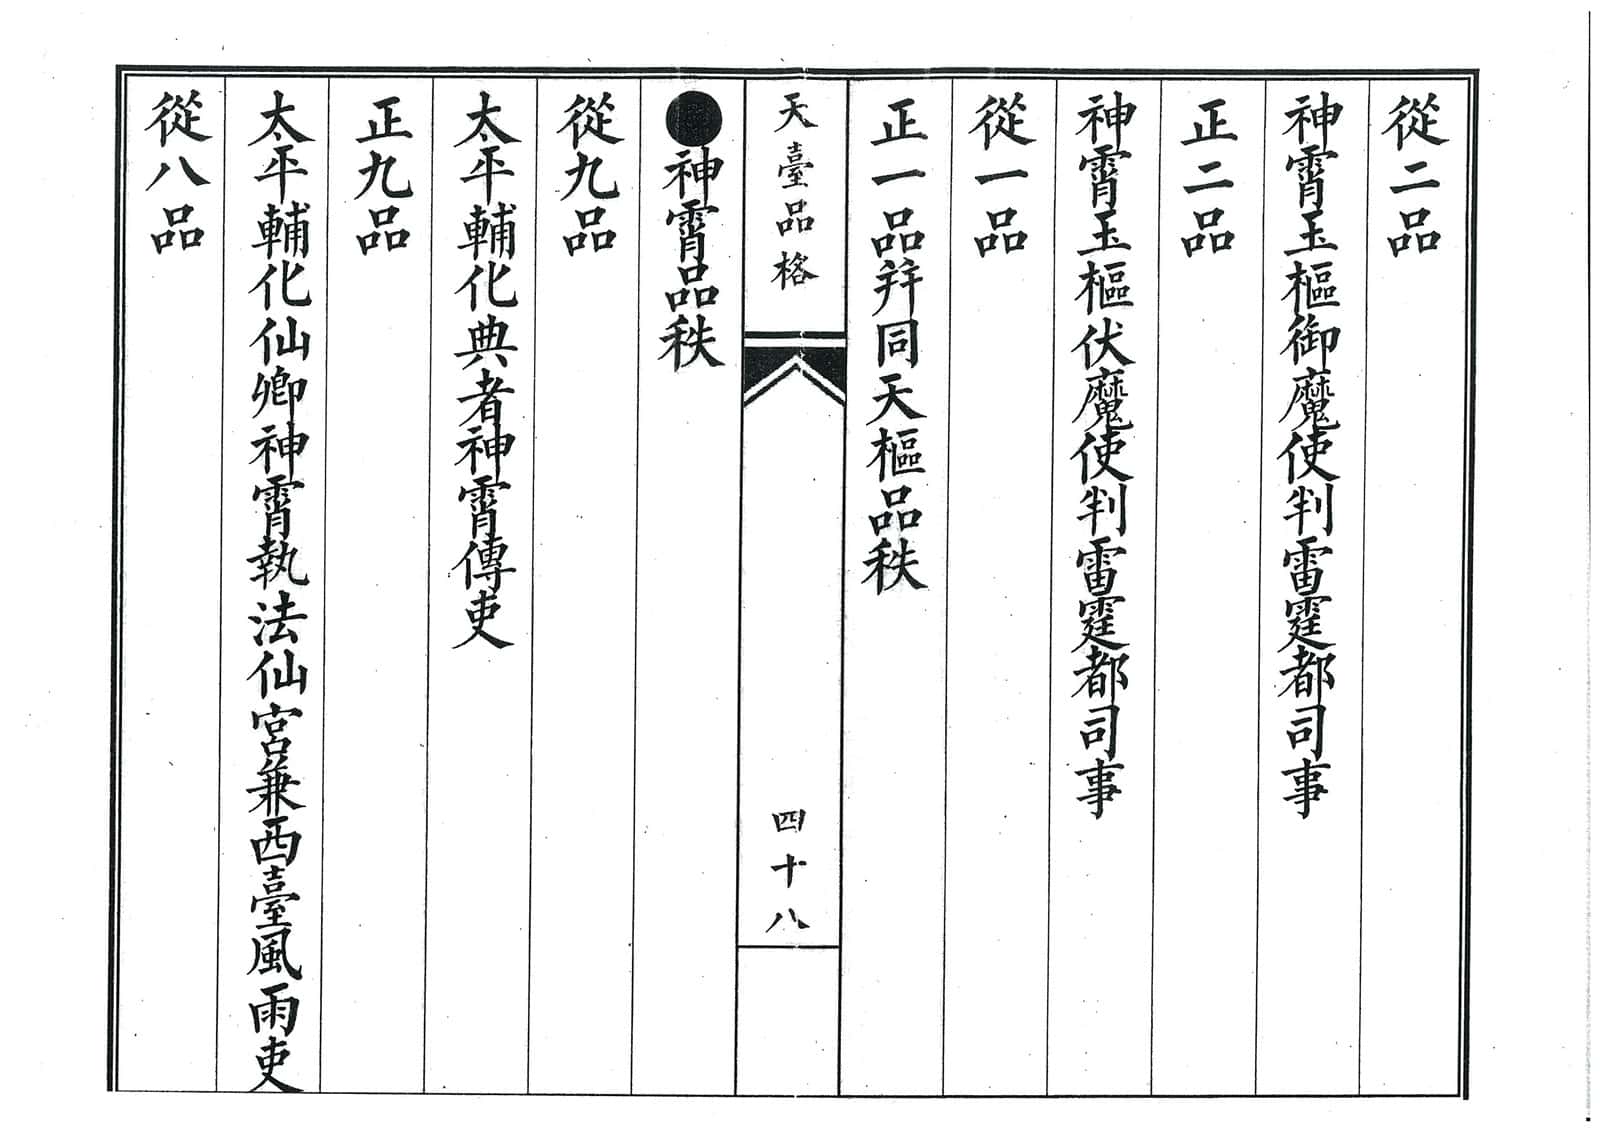 從二品
神霄玉樞御魔使判雷霆都司事
正二品
神霄玉樞伏魔使判雷霆都司事
從一品
正一品并同天樞品秩
天臺品格
四十八
●神霄品秩
從九品
太平輔化典者神霄傳吏
正九品
太平輔化仙卿神霄執法仙宮兼西臺風雨吏
從八品